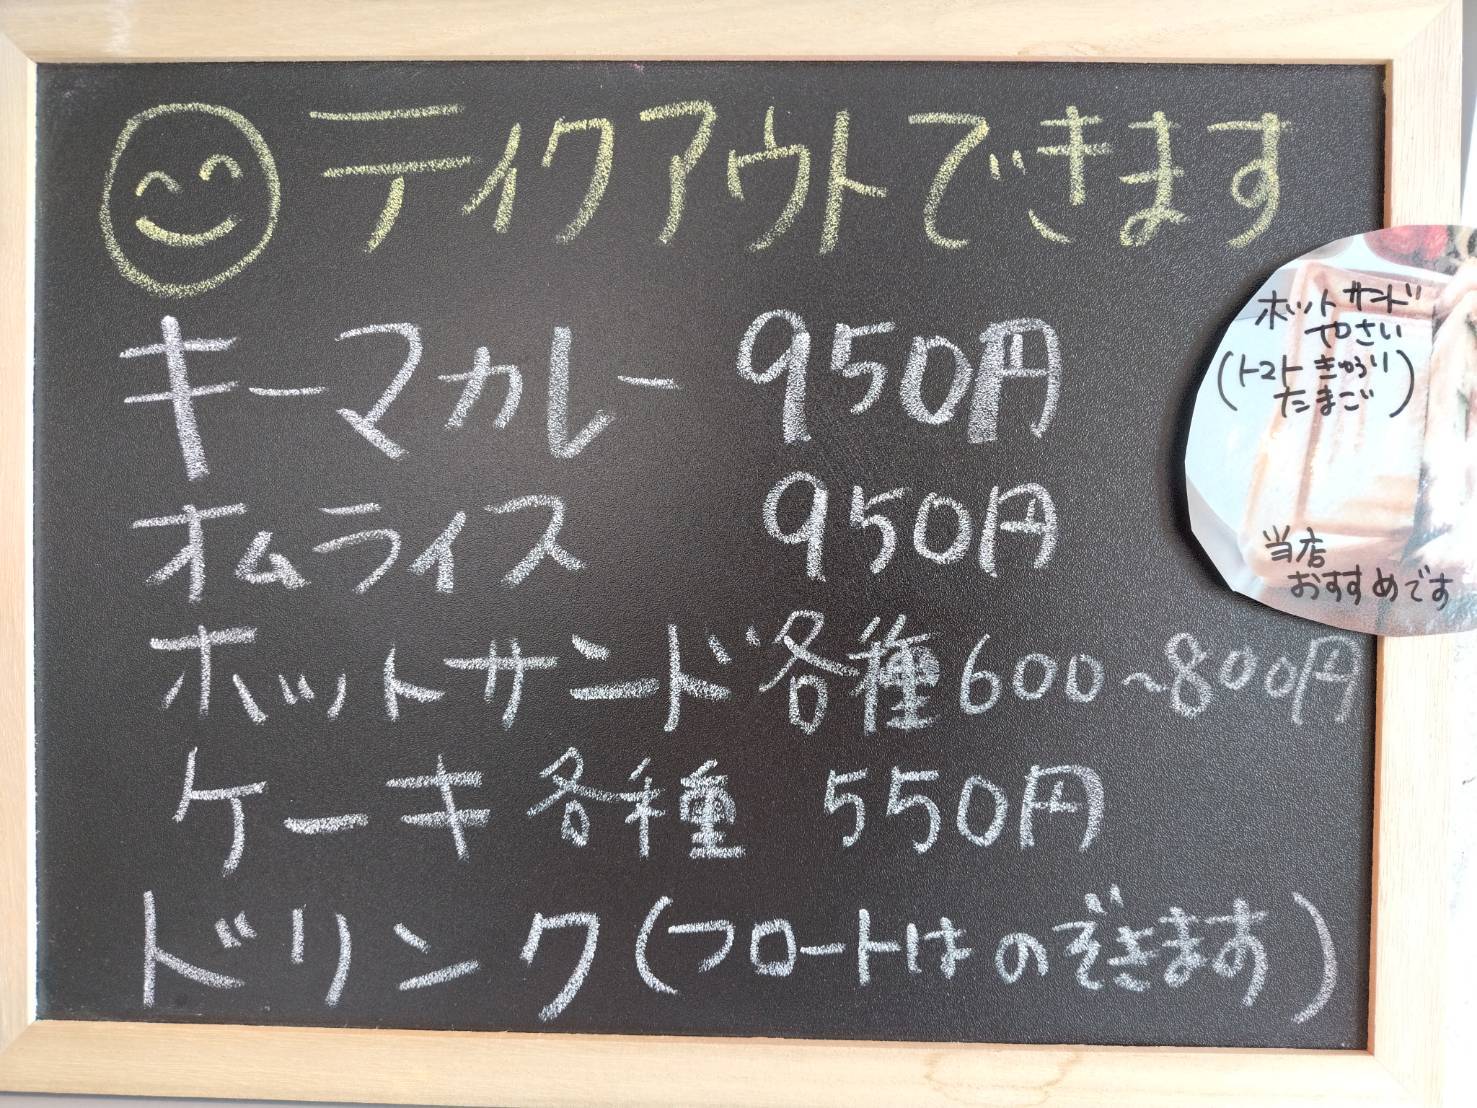 テイクアウトできます
キーマカレー 950円
オムライス 950円
ホットサンド各種 600~800円
ケーキ各種 550円
ドリンク(フロートはのぞきます)
ホットサンド
やさい
(トマト きゅうり
たまご)
当店
おすすめです